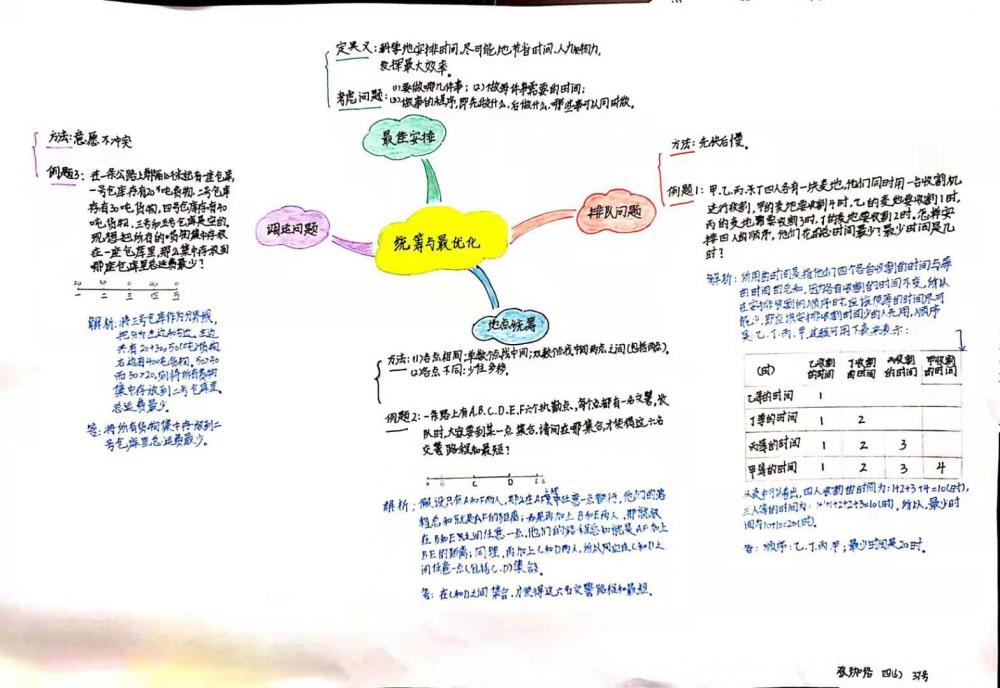 定义:科学地安排时间,尽可能地节省时间、人力和物力,
发挥最大效率。
考虑问题:(1)要做哪几件事;(2)做每件事需要的时间;
(3)做事的程序,即先做什么,后做什么,哪些事可以同时做。
最佳安排
统筹与最优化
调运问题
方法:意愿不冲突
例题3:在一条公路上每隔10千米就有一座仓库,
一号仓库存有20吨货物,二号仓库
存有30吨货物,四号仓库存有40
吨货物,三号和五号仓库是空的,
现想把所有的货物集中存放
在一座仓库里,那么集中存放到
哪座仓库里总运费最少?
20 30 40
一 二 三 四 五
解析:将三号仓库作为分界线,
把分为左边和右边,左边
共有20+30=50(吨)货物
右边有40吨货物。50>40
而30>20,则将所有货物
集中存放到二号仓库里,
总运费最少。
答:将所有货物集中存放到二
号仓库里总运费最少。
排队问题
方法:先快后慢。
例题1:甲、乙、丙、丁四人各有一块麦地,他们同时用一台收割机
进行收割,甲的麦地要收割4时,乙的麦地要收割1时,
丙的麦地需要收割3时,丁的麦地要收割2时,怎样安
排四人的顺序,他们花的总时间最少?最少时间是几
时?
解析:所用的时间是指他们四个各自收割的时间与等
的时间的总和,因为各自收割的时间不变,所以
在安排收割的顺序时,应该使等的时间尽可
能少,即应该安排收割时间少的人先用,顺序
是乙、丁、丙、甲,过程可用下表来表示:
(时) 乙收割的时间 丁收割的时间 丙收割的时间 甲收割的时间
乙等的时间 1
丁等的时间 1 2
丙等的时间 1 2 3
甲等的时间 1 2 3 4
从表中可以看出,四人收割的时间为:1+2+3+4=10(时),
三人等的时间为:1+1+1+2+2+3=10(时),所以,最少时
间为10+10=20(时)。
答:顺序:乙、丁、丙、甲;最少时间是20时。
地点统筹
方法:(1)各点相同:单数个点找中间;双数个点找中间两点之间(包括两点)。
(2)各点不同:少往多移。
例题2:一条路上有A、B、C、D、E、F六个执勤点,每个点都有一名交警,收
队时,大家要到某一点集合,请问在哪集合,才使得这六名
交警路程和最短?
C D
解析:假设只有A和F两人,那么在AF之间任意一点都行,他们的路
程总和就是AF的距离;如果再加上B和E两人,那就放
在B和E之间任意一点,他们的路程总和就是AF加上
BE的距离;同理,再加上C和D两人,所以可以在C和D之
间任意一点(包括C、D)集合。
答:在C和D之间集合,才使得这六名交警路程和最短。
四(6) 37号